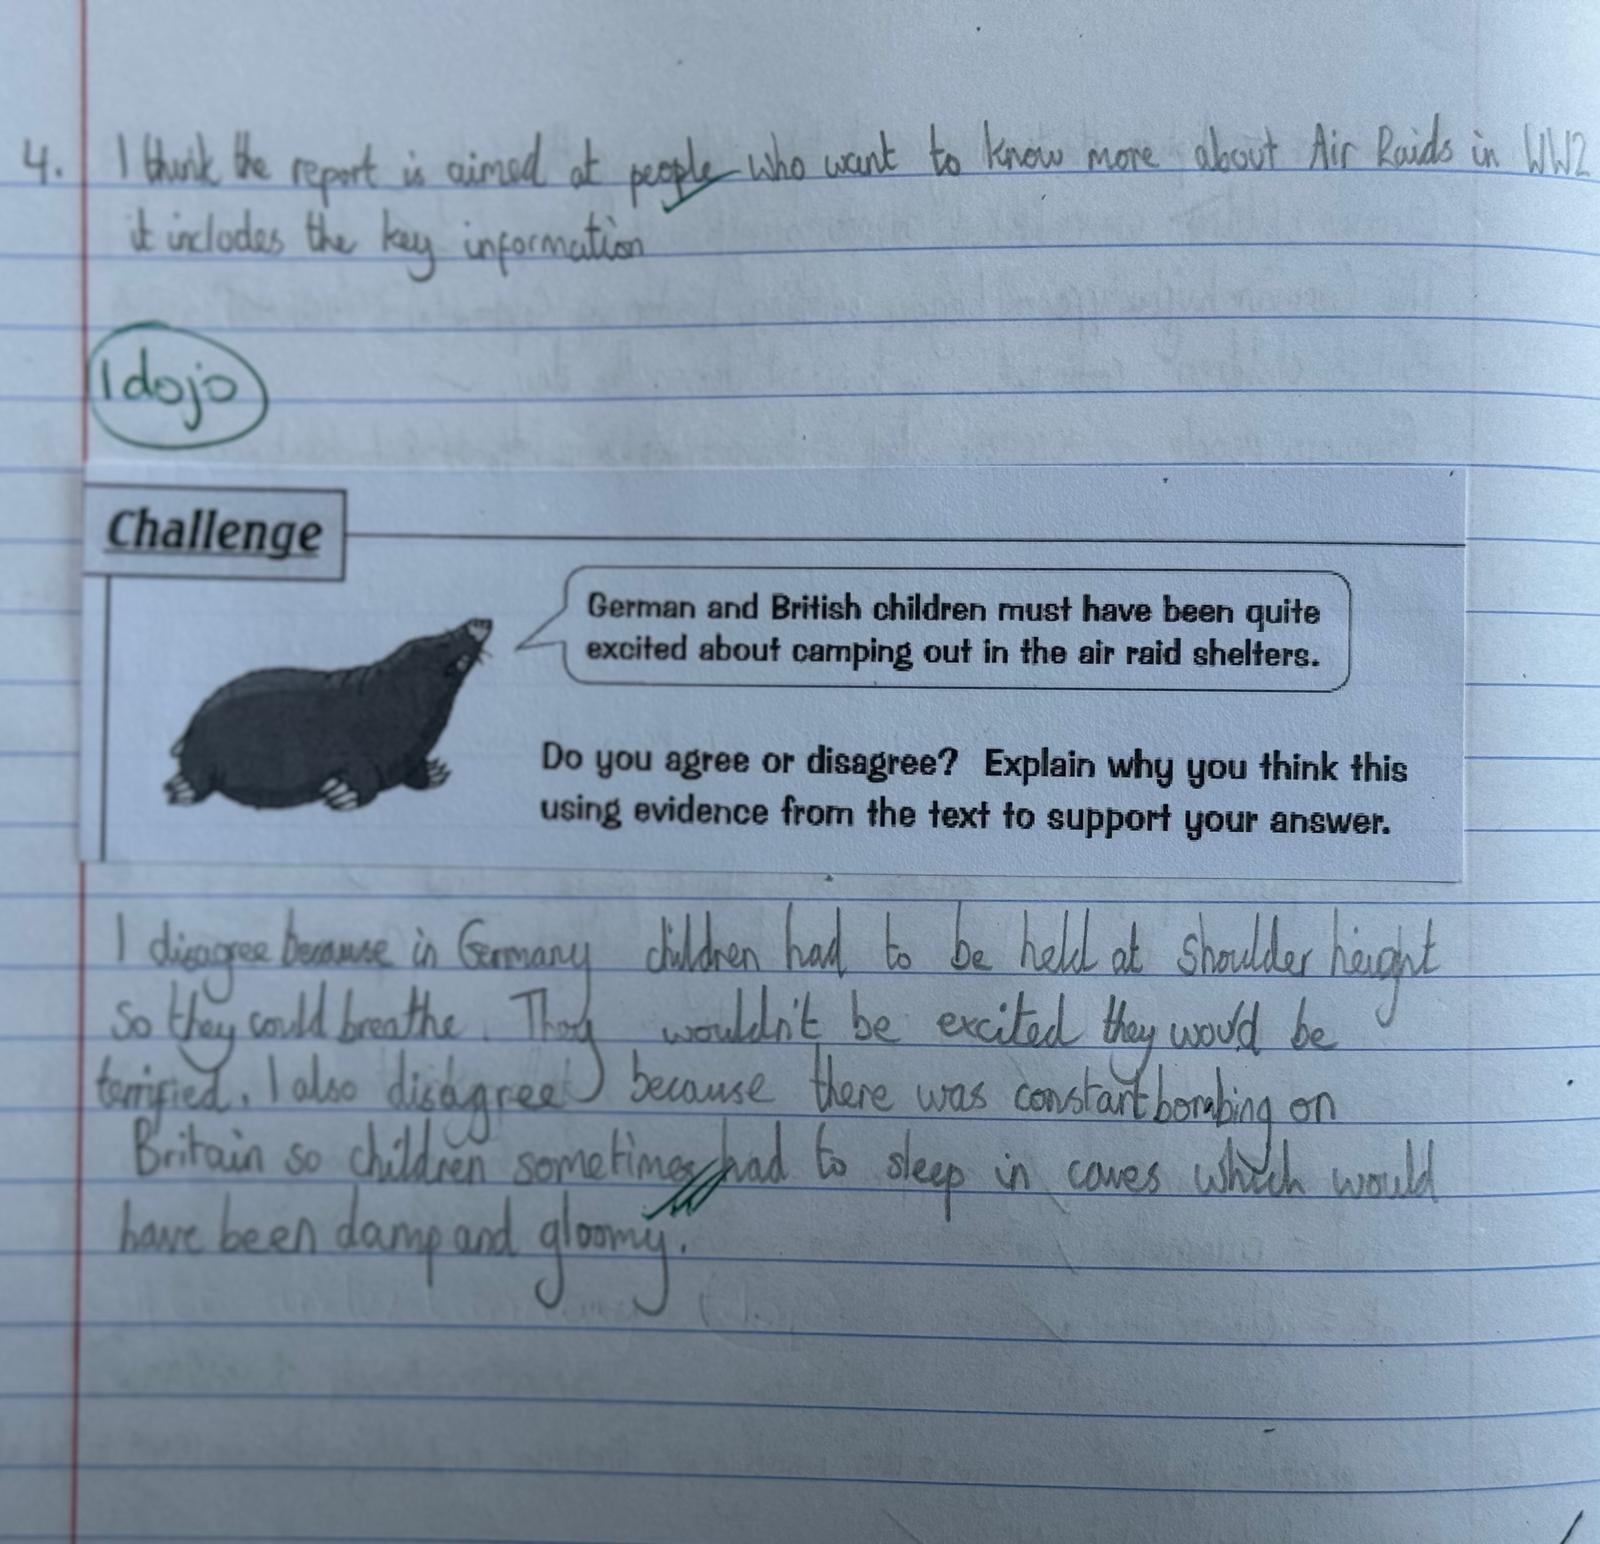 4. I think the report is aimed at people who want to know more about Air Raids in WW2
it includes the key information
1 dojo
Challenge
German and British children must have been quite
excited about camping out in the air raid shelters.
Do you agree or disagree? Explain why you think this
using evidence from the text to support your answer.
I disagree because in Germany children had to be held at shoulder height
so they could breathe. They wouldn't be excited they would be
terrified. I also disagree because there was constant bombing on
Britain so children sometimes had to sleep in caves which would
have been damp and gloomy.